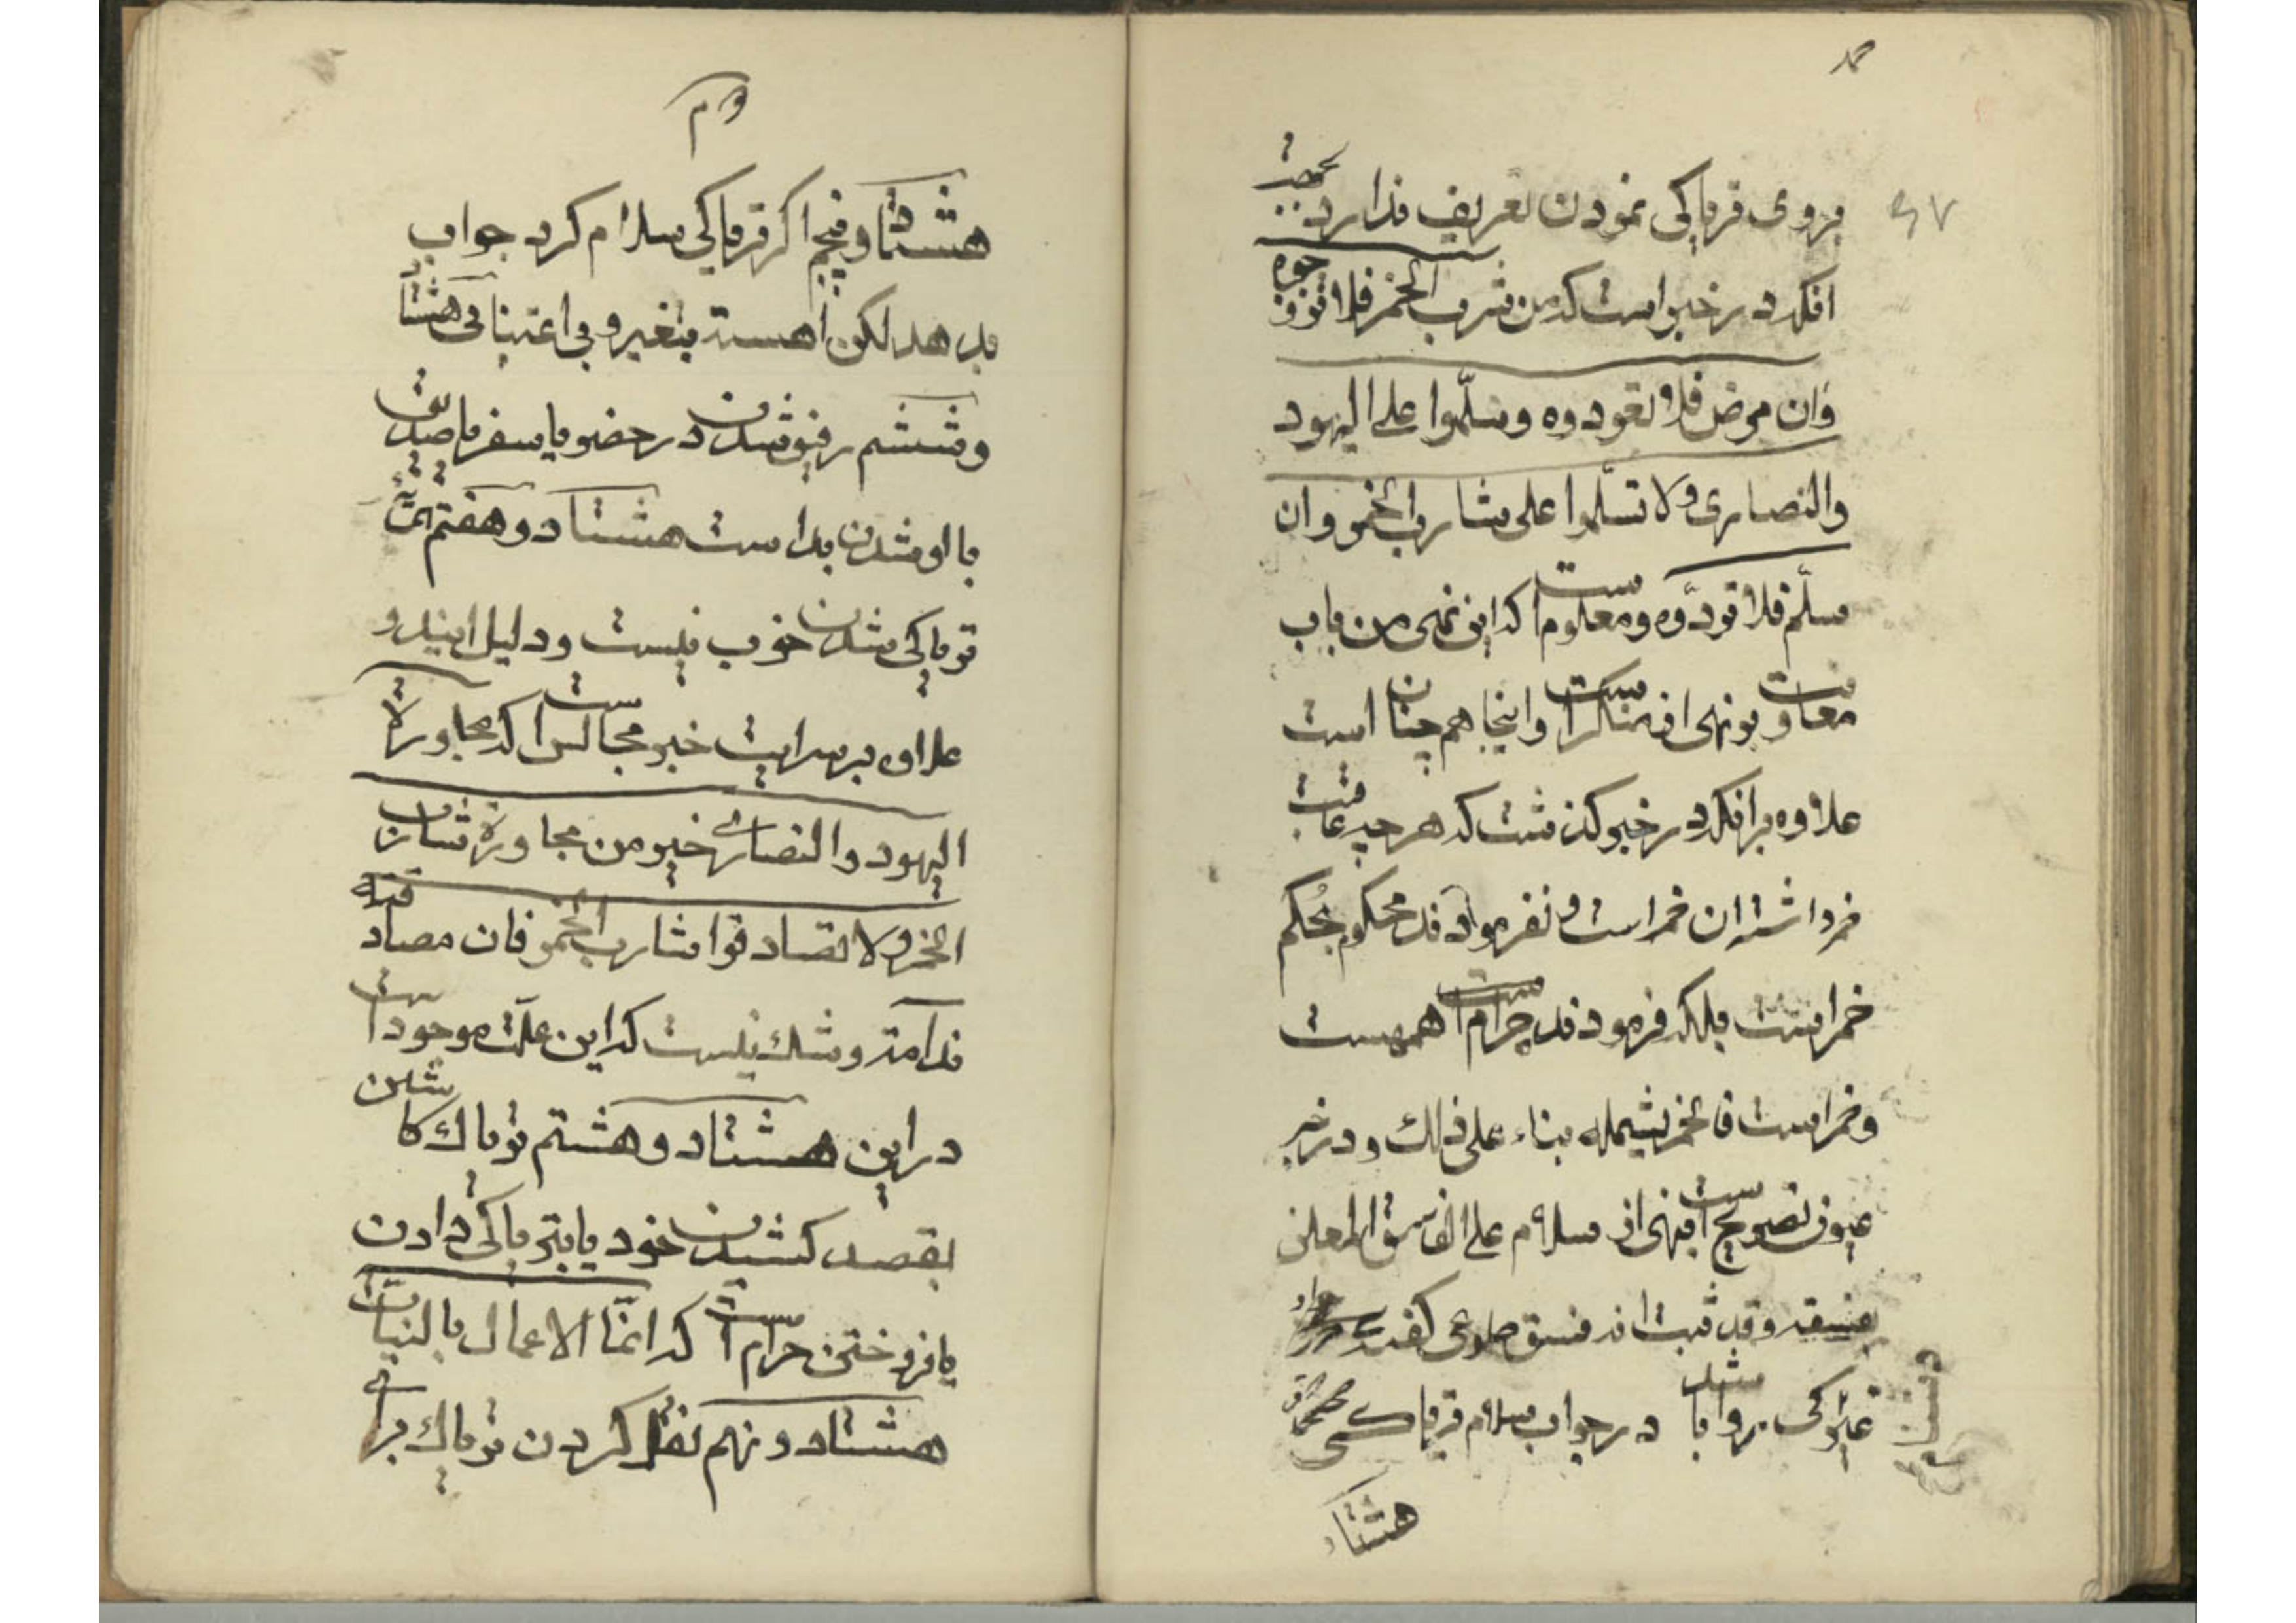 بروی تریاکی نمودن تعریف ندارد بجهت
انکه در خبر است که من شرب الخمر فلا تزوّجوه
وان مرض فلا تعودوه وسلّموا علی الیهود
والنصاری ولا تسلّموا علی شارب الخمر وان
سلّم فلا تردّوه ومعلوم است که این نهی من باب
معاونت بر نهی از منکر است واینجا هم چنان است
علاوه بر انکه در خبر گذشت که هر چه عاقبت
خمر داشته ان خمر است ونفرموده‌اند محکوم بحکم
خمر است بلکه فرمودند حرام است همهست
وخمر است فالخمر یشمله بناء علی ذلك ودر خبر
عیون تصریح است بنهی از سلام علی الفاسق المعلن
بفسقه وقد ثبت انه فسق
در جواب سلام تریاکی
هشتاد
هشتاد وپنجم اگر تریاکی سلام کرد جواب
بدهد لکن اهسته بتغیر وبی اعتنائی هشتاد
وششم رفیق شدن در حضر یا سفر یا صدیق
با او شدن بد است هشتاد وهفتم همسایه
تریاکی شدن خوب نیست ودلیل ایندو
علاوه بر سرایت خبر مجالس است که مجاورة
الیهود والنصاری خیر من مجاورة شارب
الخمر ولا تصادقوا شارب الخمر فان مصادقته
ندامة وشك نیست که این علّت موجود است
در این هشتاد وهشتم تریاك کاشتن
بقصد کشیدن خود یا بتریاکی دادن
یا فروختن حرام است که انّما الاعمال بالنیات
هشتاد ونهم نقل کردن تریاك برای